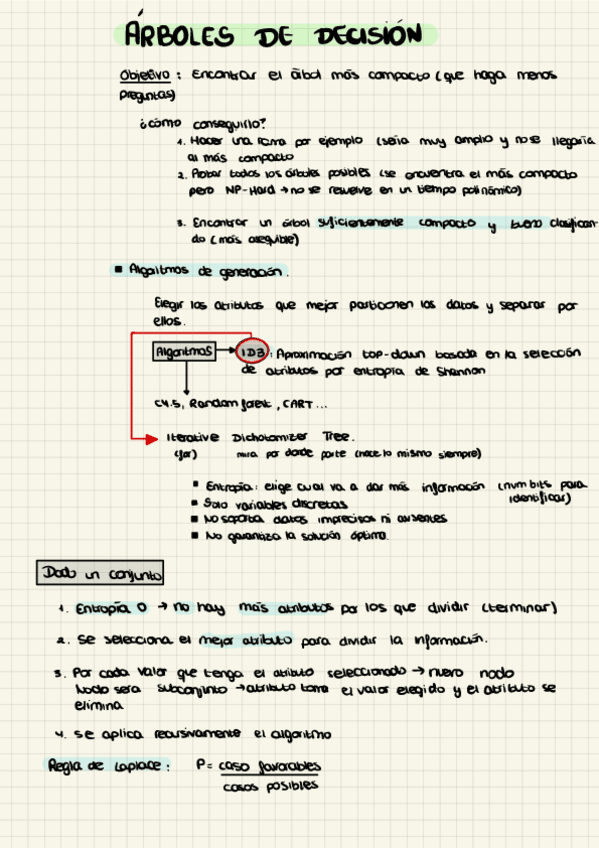 ÁRBOLES DE DECISIÓN
Objetivo: Encontrar el árbol más compacto (que haga menos
preguntas)
¿cómo conseguirlo?
1. Hacer una rama por ejemplo (sería muy amplio y no se llegaría
al más compacto
2. Probar todos los árboles posibles (se encuentra el más compacto
pero NP-Hard → no se resuelve en un tiempo polinómico)
3. Encontrar un árbol suficientemente compacto y bueno clasifican-
do (más asequible)
Algoritmos de generación.
Elegir los atributos que mejor particionen los datos y separar por
ellos.
Algoritmos → ID3: Aproximación top-down basada en la selección
de atributos por entropía de Shannon
C4.5, Random forest, CART...
Iterative Dichotomizer Tree.
(for) mira por donde parte (hace lo mismo siempre)
Entropía: elige cual va a dar más información (num bits para
identificar)
Solo variables discretas
No soporta datos imprecisos ni ausentes
No garantiza la solución óptima.
Dado un conjunto
1. Entropía 0 → no hay más atributos por los que dividir (terminar)
2. Se selecciona el mejor atributo para dividir la información.
3. Por cada valor que tenga el atributo seleccionado → nuevo nodo
Nodo será subconjunto → atributo toma el valor elegido y el atributo se
elimina
4. Se aplica recursivamente el algoritmo
Regla de Laplace: P = caso favorables
casos posibles